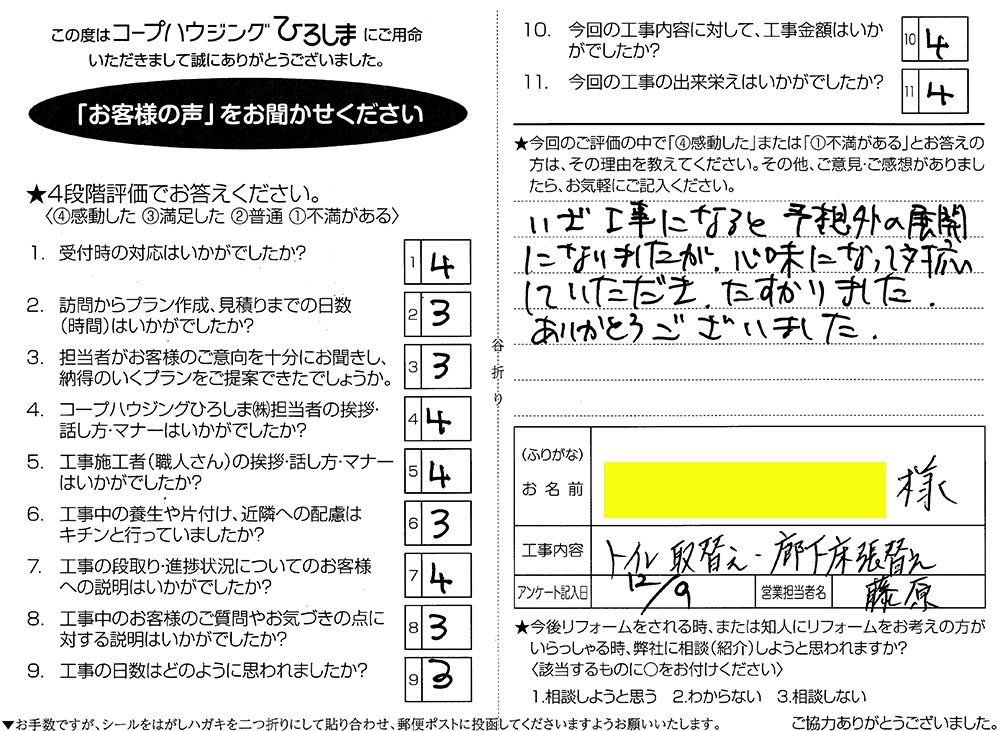 この度はコープハウジングひろしまにご用命
いただきまして誠にありがとうございました。
「お客様の声」をお聞かせください
★4段階評価でお答えください。
〈④感動した ③満足した ②普通 ①不満がある〉
1. 受付時の対応はいかがでしたか?
1 4
2. 訪問からプラン作成、見積りまでの日数
(時間)はいかがでしたか?
2 3
3. 担当者がお客様のご意向を十分にお聞きし、
納得のいくプランをご提案できたでしょうか。
3 3
4. コープハウジングひろしま㈱担当者の挨拶・
話し方・マナーはいかがでしたか?
4 4
5. 工事施工者(職人さん)の挨拶・話し方・マナー
はいかがでしたか?
5 4
6. 工事中の養生や片付け、近隣への配慮は
キチンと行っていましたか?
6 3
7. 工事の段取り・進捗状況についてのお客様
への説明はいかがでしたか?
7 4
8. 工事中のお客様のご質問やお気づきの点に
対する説明はいかがでしたか?
8 3
9. 工事の日数はどのように思われましたか?
9 3
▼お手数ですが、シールをはがしハガキを二つ折りにして貼り合わせ、郵便ポストに投函してくださいますようお願いいたします。
谷折り
10. 今回の工事内容に対して、工事金額はいか
がでしたか?
10 4
11. 今回の工事の出来栄えはいかがでしたか?
11 4
★今回のご評価の中で「④感動した」または「①不満がある」とお答えの
方は、その理由を教えてください。その他、ご意見・ご感想がありまし
たら、お気軽にご記入ください。
いざ工事になると予想外の展開
になりましたが、心味になって対応
していただき、たすかりました.
ありがとうございました.
(ふりがな)
お名前
様
工事内容
トイレ取替え・廊下床張替え
アンケート記入日
12/9
営業担当者名
藤原
★今後リフォームをされる時、または知人にリフォームをお考えの方が
いらっしゃる時、弊社に相談(紹介)しようと思われますか?
〈該当するものに○をお付けください〉
1.相談しようと思う 2.わからない 3.相談しない
ご協力ありがとうございました。